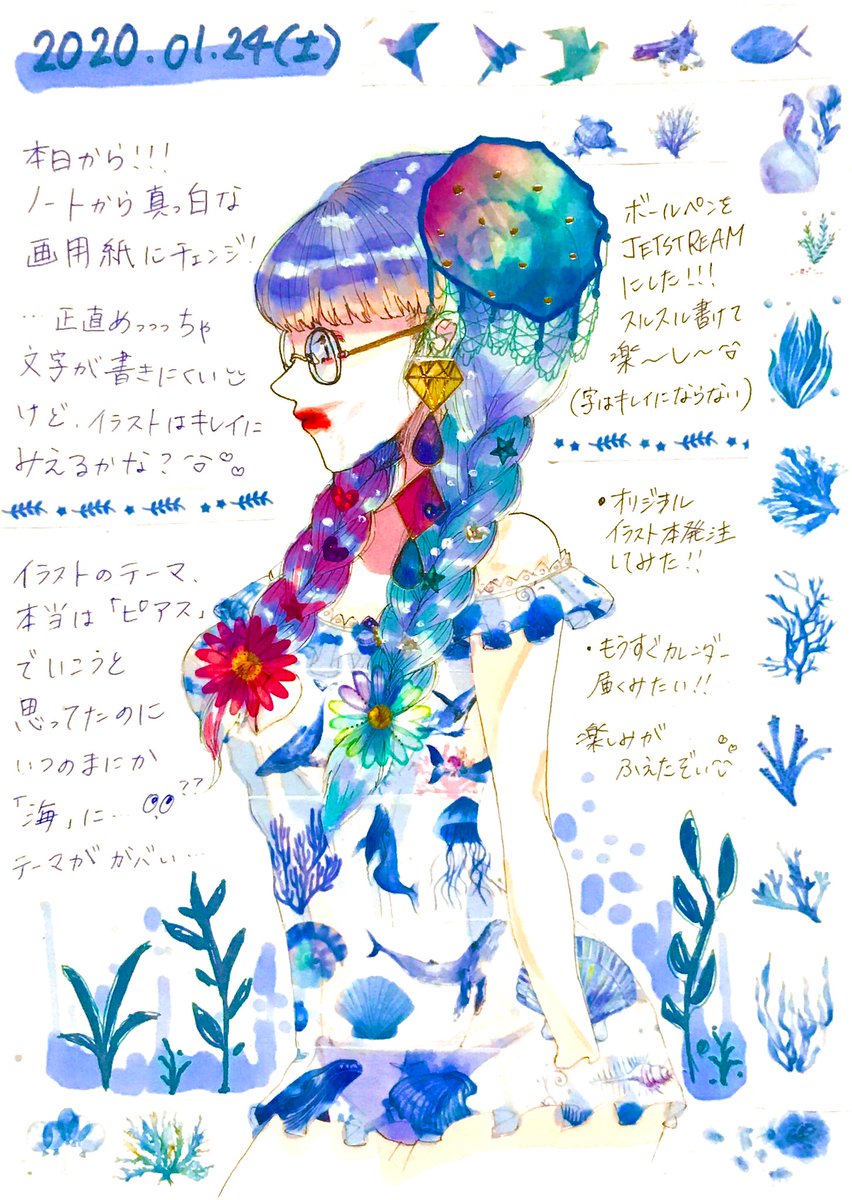 2020.01.24(土)
本日から!!!
ノートから真っ白な
画用紙にチェンジ!
…正直めっっっちゃ
文字が書きにくい
けど、イラストはキレイに
みえるかな?
イラストのテーマ、
本当は「ピアス」
でいこうと
思ってたのに
いつのまにか
「海」に…??
テーマがガバい…
ボールペンを
JETSTREAM
にした!!!
スルスル書けて
楽〜し〜
(字はキレイにならない)
・オリジナル
イラスト本発注
してみた!!
・もうすぐカレンダー
届くみたい!!
楽しみが
ふえたぞい